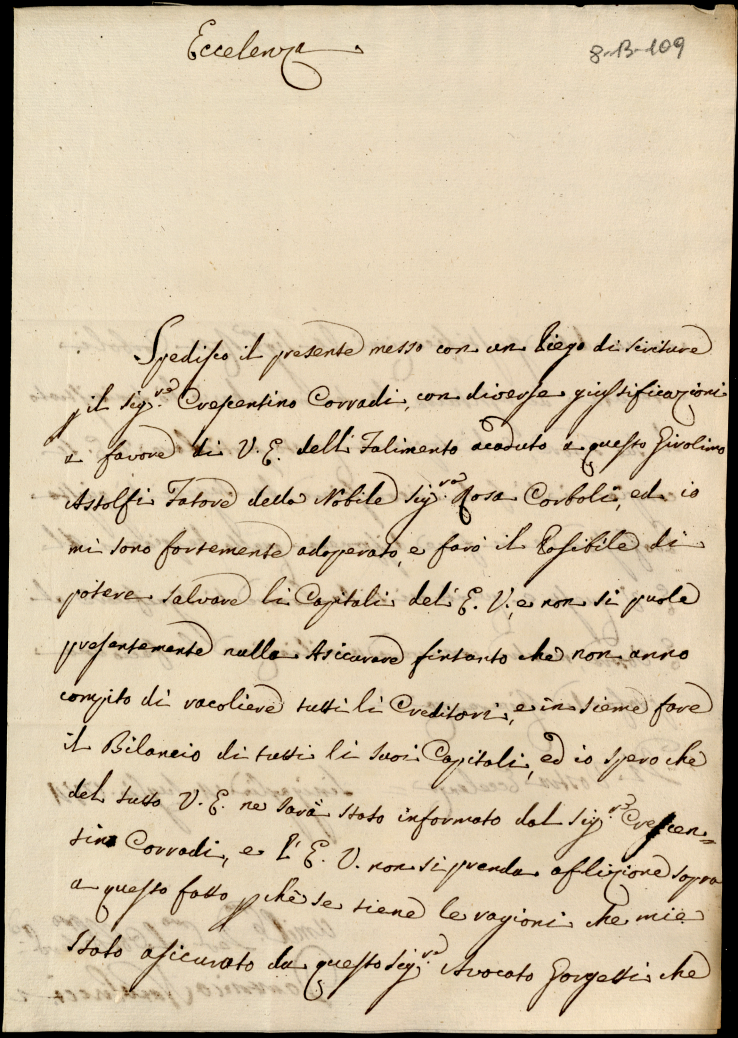 Eccelenza
8-B-109
Spedisco il presente messo con un Piego di scriture
p il Sig.re Crescentino Corradi, con diverse giustificazioni
a favore di V. E. dell Falimento acaduto a questo Girolimo
Astolfi Fatore della Nobile Sig.ra Rosa Corboli, ed io
mi sono fortemente adoperato, e farò il Posibile di
potere salvare li Capitali dell E. V., e non si puole
presentemente nulla Asicurare fintanto che non anno
compito di racoliere tutti li Creditori, e in sieme fare
il Bilancio di tutti li suoi Capitali, ed io spero che
del tutto V. E. ne sarà stato informato dal Sig.re Crescen=
tino Corradi, e L' E. V. non si prenda aflizione sopra
a questo fatto p chè se tiene le ragioni che mie
stato asicurato da questo Sig.re Avocato Gorgetti che